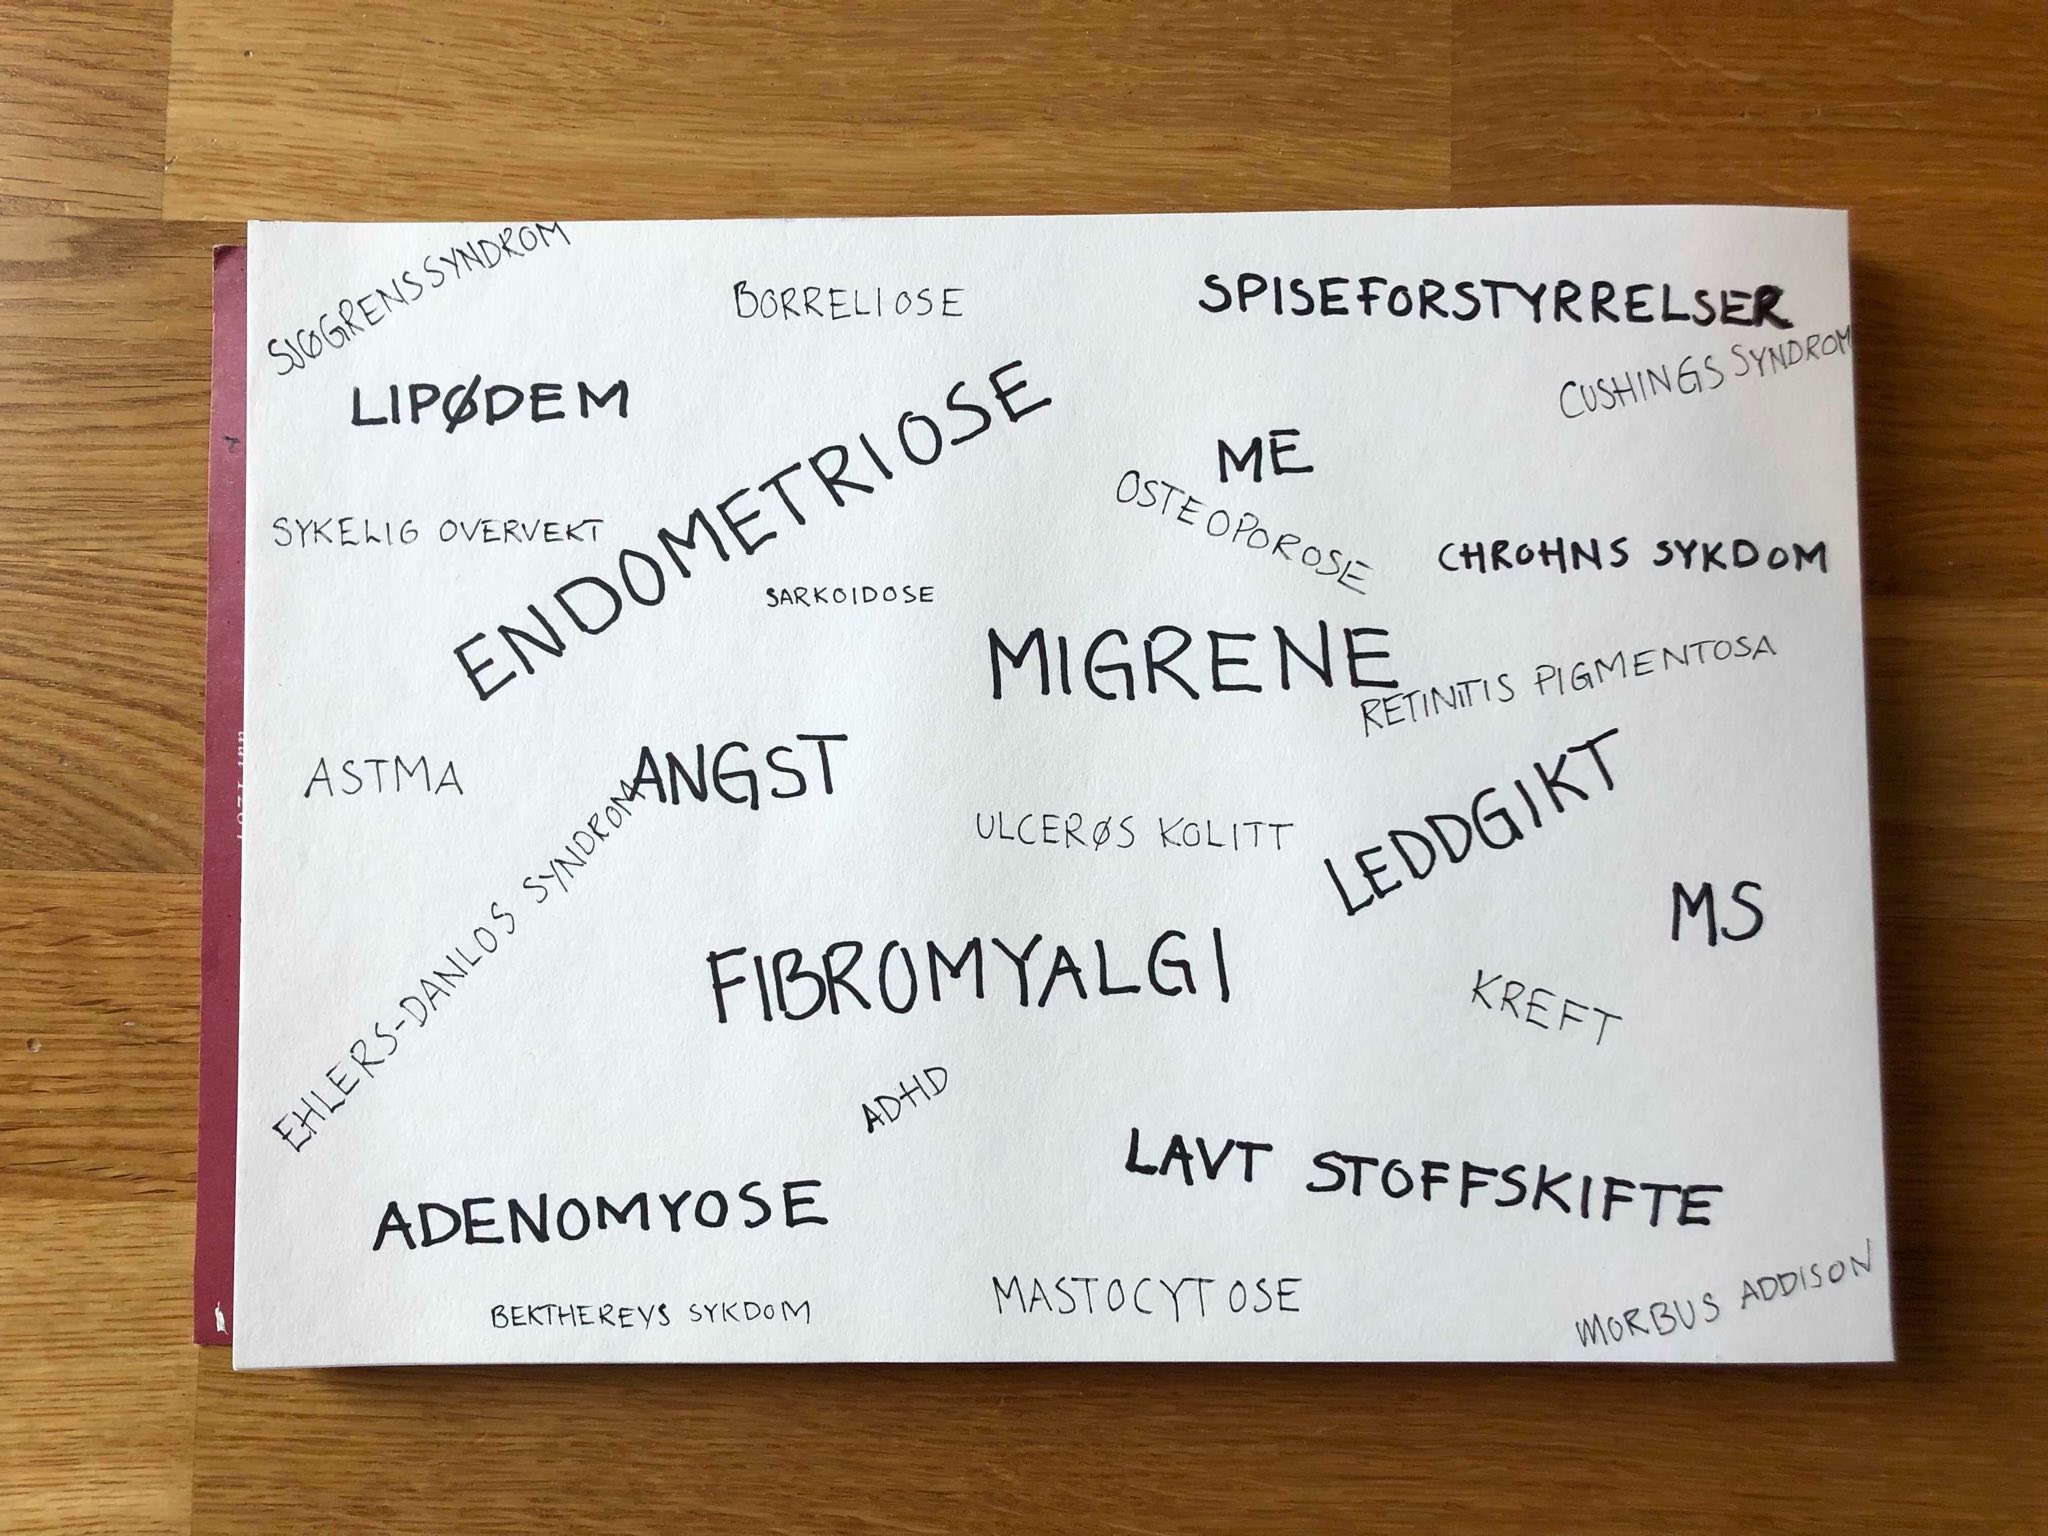 SJØGRENS SYNDROM
BORRELIOSE
SPISEFORSTYRRELSER
CUSHINGS SYNDROM
LIPØDEM
ENDOMETRIOSE
ME
OSTEOPOROSE
SYKELIG OVERVEKT
CHROHNS SYKDOM
SARKOIDOSE
MIGRENE
RETINITIS PIGMENTOSA
ASTMA
ANGST
ULCERØS KOLITT
LEDDGIKT
EHLERS-DANLOS SYNDROM
MS
FIBROMYALGI
KREFT
ADHD
LAVT STOFFSKIFTE
ADENOMYOSE
MASTOCYTOSE
BEKTHEREVS SYKDOM
MORBUS ADDISON